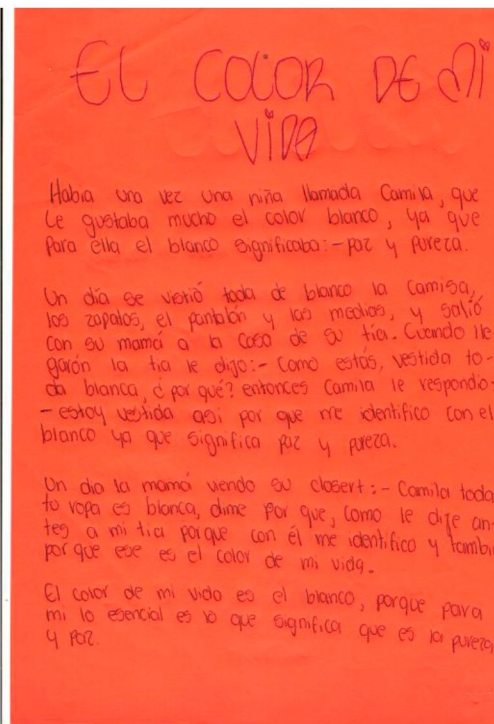 EL COLOR DE MI
VIDA
Habia una vez una niña llamada Camila, que
Le gustaba mucho el color blanco, ya que
Para ella el blanco significaba:-Paz y Pureza.
Un día se vistió toda de blanco la Camisa,
los zapatos, el pantalón y las medias, y salió
con su mamá a la casa de su tía. Cuando lle
garón la tía le dijo:- Como estás, vestida to-
da blanca, ¿por qué? entonces Camila le respondio-
-estoy vestida asi por que me identifico con el
blanco ya que significa Paz y pureza.
Un dia la mamá viendo su closert:- Camila toda
tu ropa es blanca, dime por que, Como le dije an
tes a mi tia porque con él me identifico y tambi
por que ese es el color de mi vida.
El color de mi vida es el blanco, porque para
mi lo esencial es lo que significa que es la pureza
y Paz.